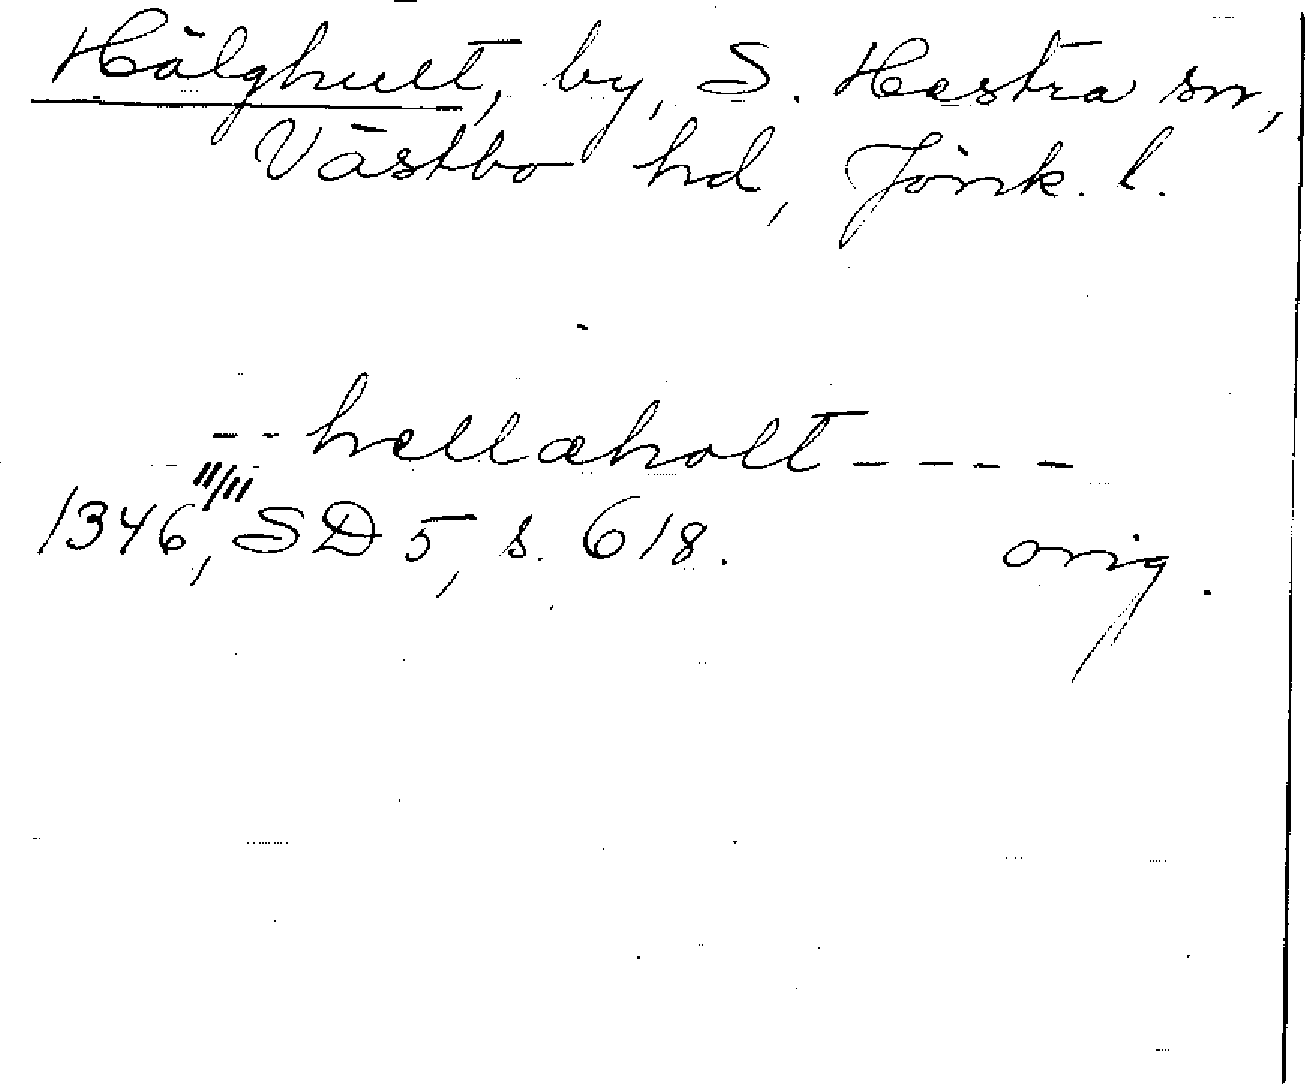 Hälghult, by, S. Hestra sn,
Västbo hd, Jönk. l.
-- hellæholt ----
1346 11/11, SD 5, s. 618. orig.